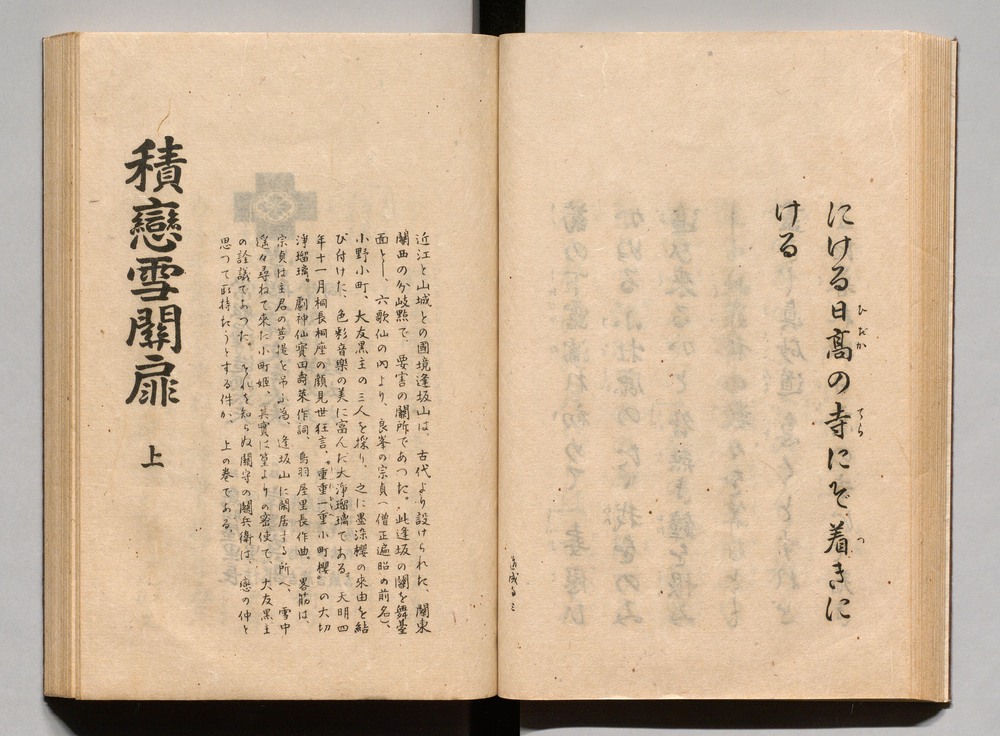 にける日髙の寺にぞ着きに
ひだか
てら
つ
ける
道成寺三
近江と山城との國境逢坂山は、古代より設けられた、關東
關西の分岐點で、要害の關所であつた。此逢坂の關を舞臺
面とし、六歌仙の內より、良峯の宗貞(僧正遍昭の前名)、
小野小町、大友黑主の三人を採り、之に墨染櫻の来由を結
び付けた、色彩音樂の美に富んだ大浄瑠璃である。天明四
年十一月桐長桐座の顏見世狂言、重重一重小町櫻の大切
浄瑠璃。劇神仙寳田壽萊作詞、鳥羽屋里長作曲。畧筋は、
宗貞は主君の菩提を吊ふ為、逢坂山に閑居する所へ、雪中
遙々尋ねて来た小町姬、其實は
よりの密使で、大友黑主
の詮議であつた。それを知らぬ關守の關兵衞は、戀の仲と
思つて取持たうとする件が、上の巻である。
積戀雪關扉 上